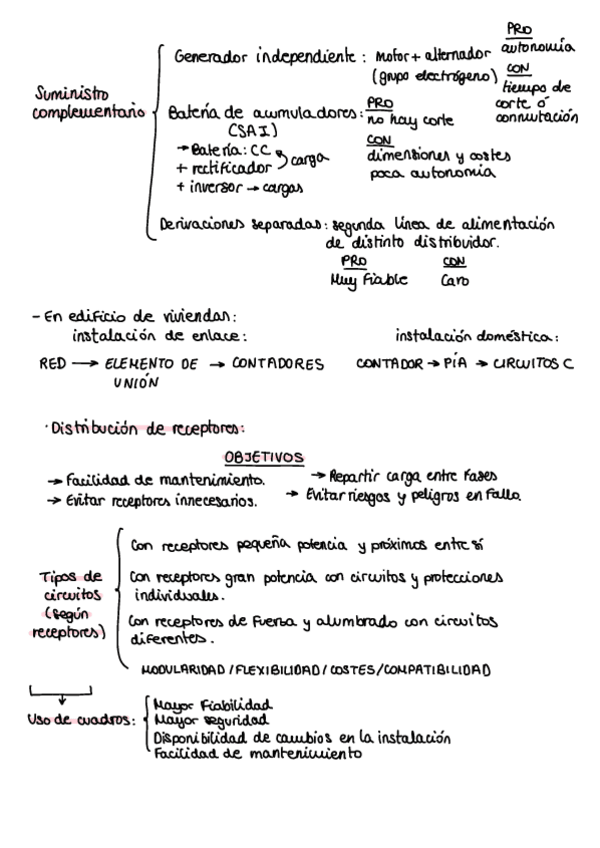 Suministro complementario
Generador independiente: motor + alternador
(grupo electrógeno)
PRO
autonomía
CON
tiempo de
corte ó
conmutación
Batería de acumuladores:
(SAI)
→ Batería: CC
+ rectificador } carga
+ inversor → cargas
PRO
no hay corte
CON
dimensiones y costes
poca autonomía
Derivaciones separadas: segunda línea de alimentación
de distinto distribuidor.
PRO CON
Muy Fiable Caro
- En edificio de viviendas:
instalación de enlace:
RED → ELEMENTO DE → CONTADORES
UNIÓN
instalación doméstica:
CONTADOR → PÍA → CIRCUITOS C
· Distribución de receptores:
OBJETIVOS
→ Facilidad de mantenimiento. → Repartir carga entre Fases
→ Evitar receptores innecesarios. → Evitar riesgos y peligros en Fallo.
Tipos de
circuitos
(según
receptores)
Con receptores pequeña potencia y próximos entre sí
Con receptores gran potencia con circuitos y protecciones
individuales.
Con receptores de Fuerza y alumbrado con circuitos
diferentes.
MODULARIDAD / FLEXIBILIDAD / COSTES / COMPATIBILIDAD
Uso de cuadros:
Mayor Fiabilidad
Mayor seguridad
Disponibilidad de cambios en la instalación
Facilidad de mantenimiento